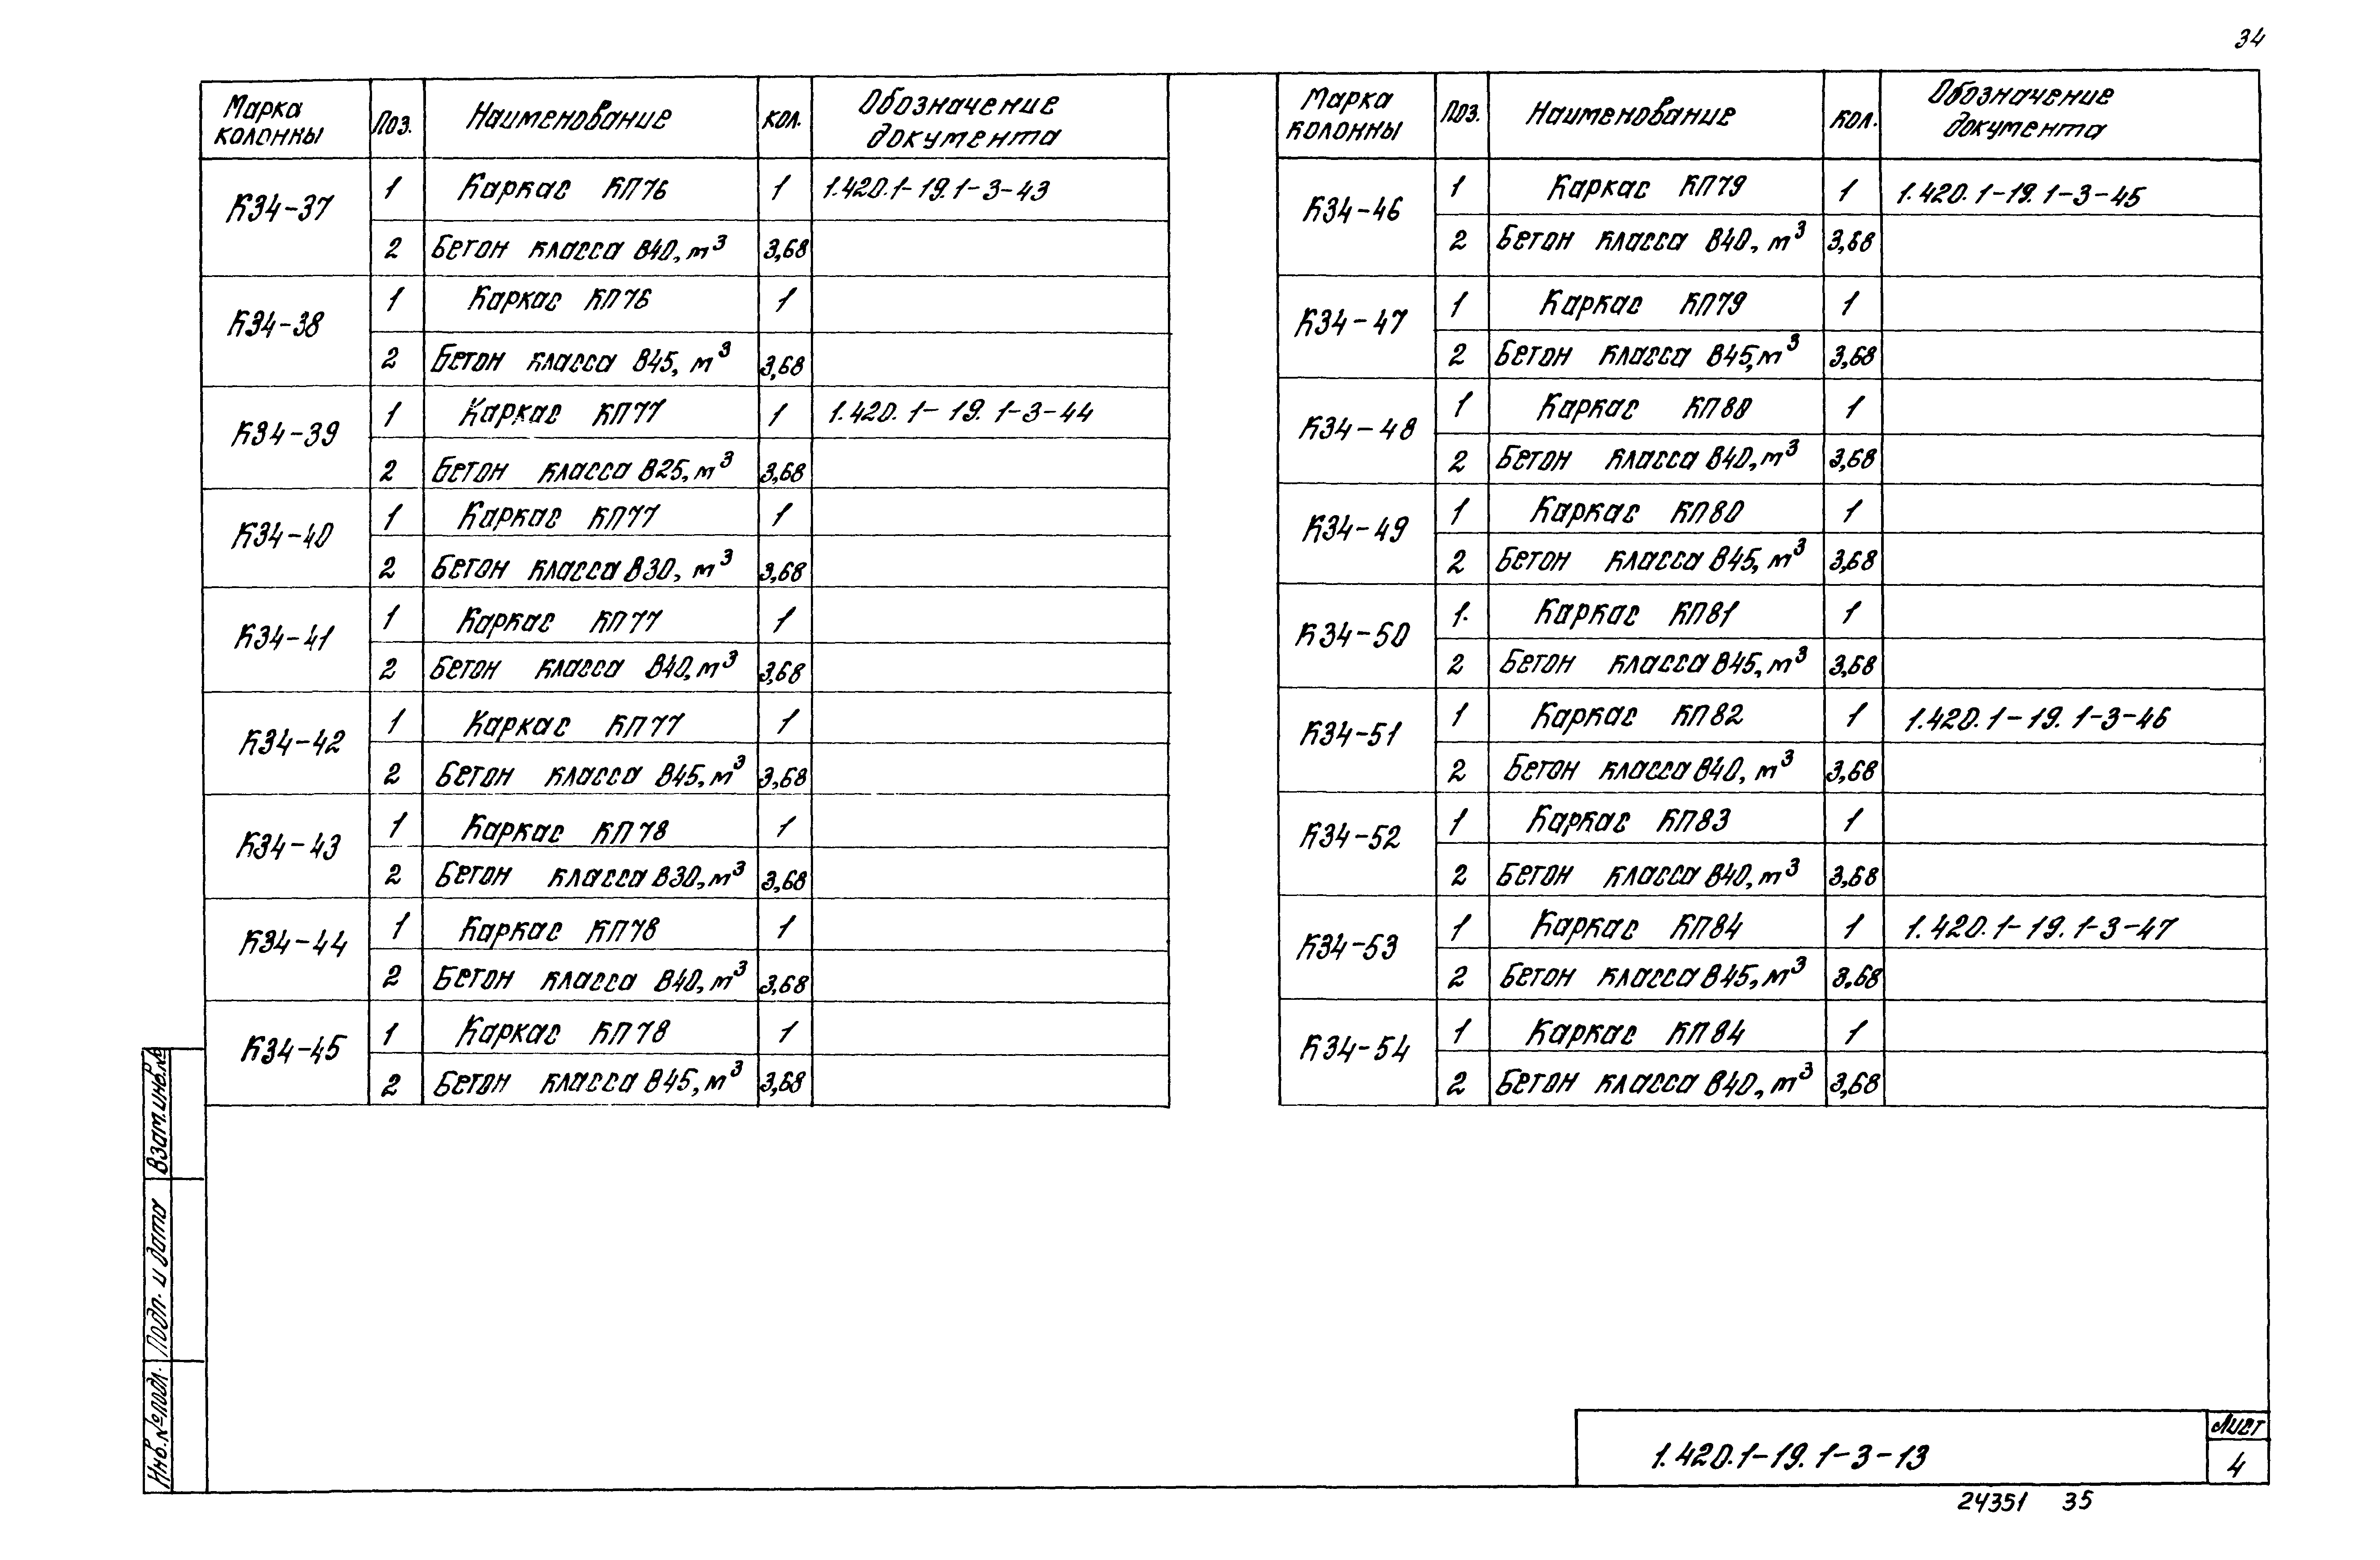 34
Марка колонны Поз. Наименование кол. Обозначение документа
К34-37 1 Каркас КП76 1 1.420.1-19.1-3-43
2 Бетон класса В40, м³ 3,68
К34-38 1 Каркас КП76 1
2 Бетон класса В45, м³ 3,68
К34-39 1 Каркас КП77 1 1.420.1-19.1-3-44
2 Бетон класса В25, м³ 3,68
К34-40 1 Каркас КП77 1
2 Бетон класса В30, м³ 3,68
К34-41 1 Каркас КП77 1
2 Бетон класса В40, м³ 3,68
К34-42 1 Каркас КП77 1
2 Бетон класса В45, м³ 3,68
К34-43 1 Каркас КП78 1
2 Бетон класса В30, м³ 3,68
К34-44 1 Каркас КП78 1
2 Бетон класса В40, м³ 3,68
К34-45 1 Каркас КП78 1
2 Бетон класса В45, м³ 3,68
Марка колонны Поз. Наименование кол. Обозначение документа
К34-46 1 Каркас КП79 1 1.420.1-19.1-3-45
2 Бетон класса В40, м³ 3,68
К34-47 1 Каркас КП79 1
2 Бетон класса В45, м³ 3,68
К34-48 1 Каркас КП80 1
2 Бетон класса В40, м³ 3,68
К34-49 1 Каркас КП80 1
2 Бетон класса В45, м³ 3,68
К34-50 1. Каркас КП81 1
2 Бетон класса В45, м³ 3,68
К34-51 1 Каркас КП82 1 1.420.1-19.1-3-46
2 Бетон класса В40, м³ 3,68
К34-52 1 Каркас КП83 1
2 Бетон класса В40, м³ 3,68
К34-53 1 Каркас КП84 1 1.420.1-19.1-3-47
2 Бетон класса В45, м³ 3,68
К34-54 1 Каркас КП84 1
2 Бетон класса В40, м³ 3,68
Взам.инв.№
Подп. и дата
Инв.№подл.
1.420.1-19.1-3-13
Лист
4
24351 35